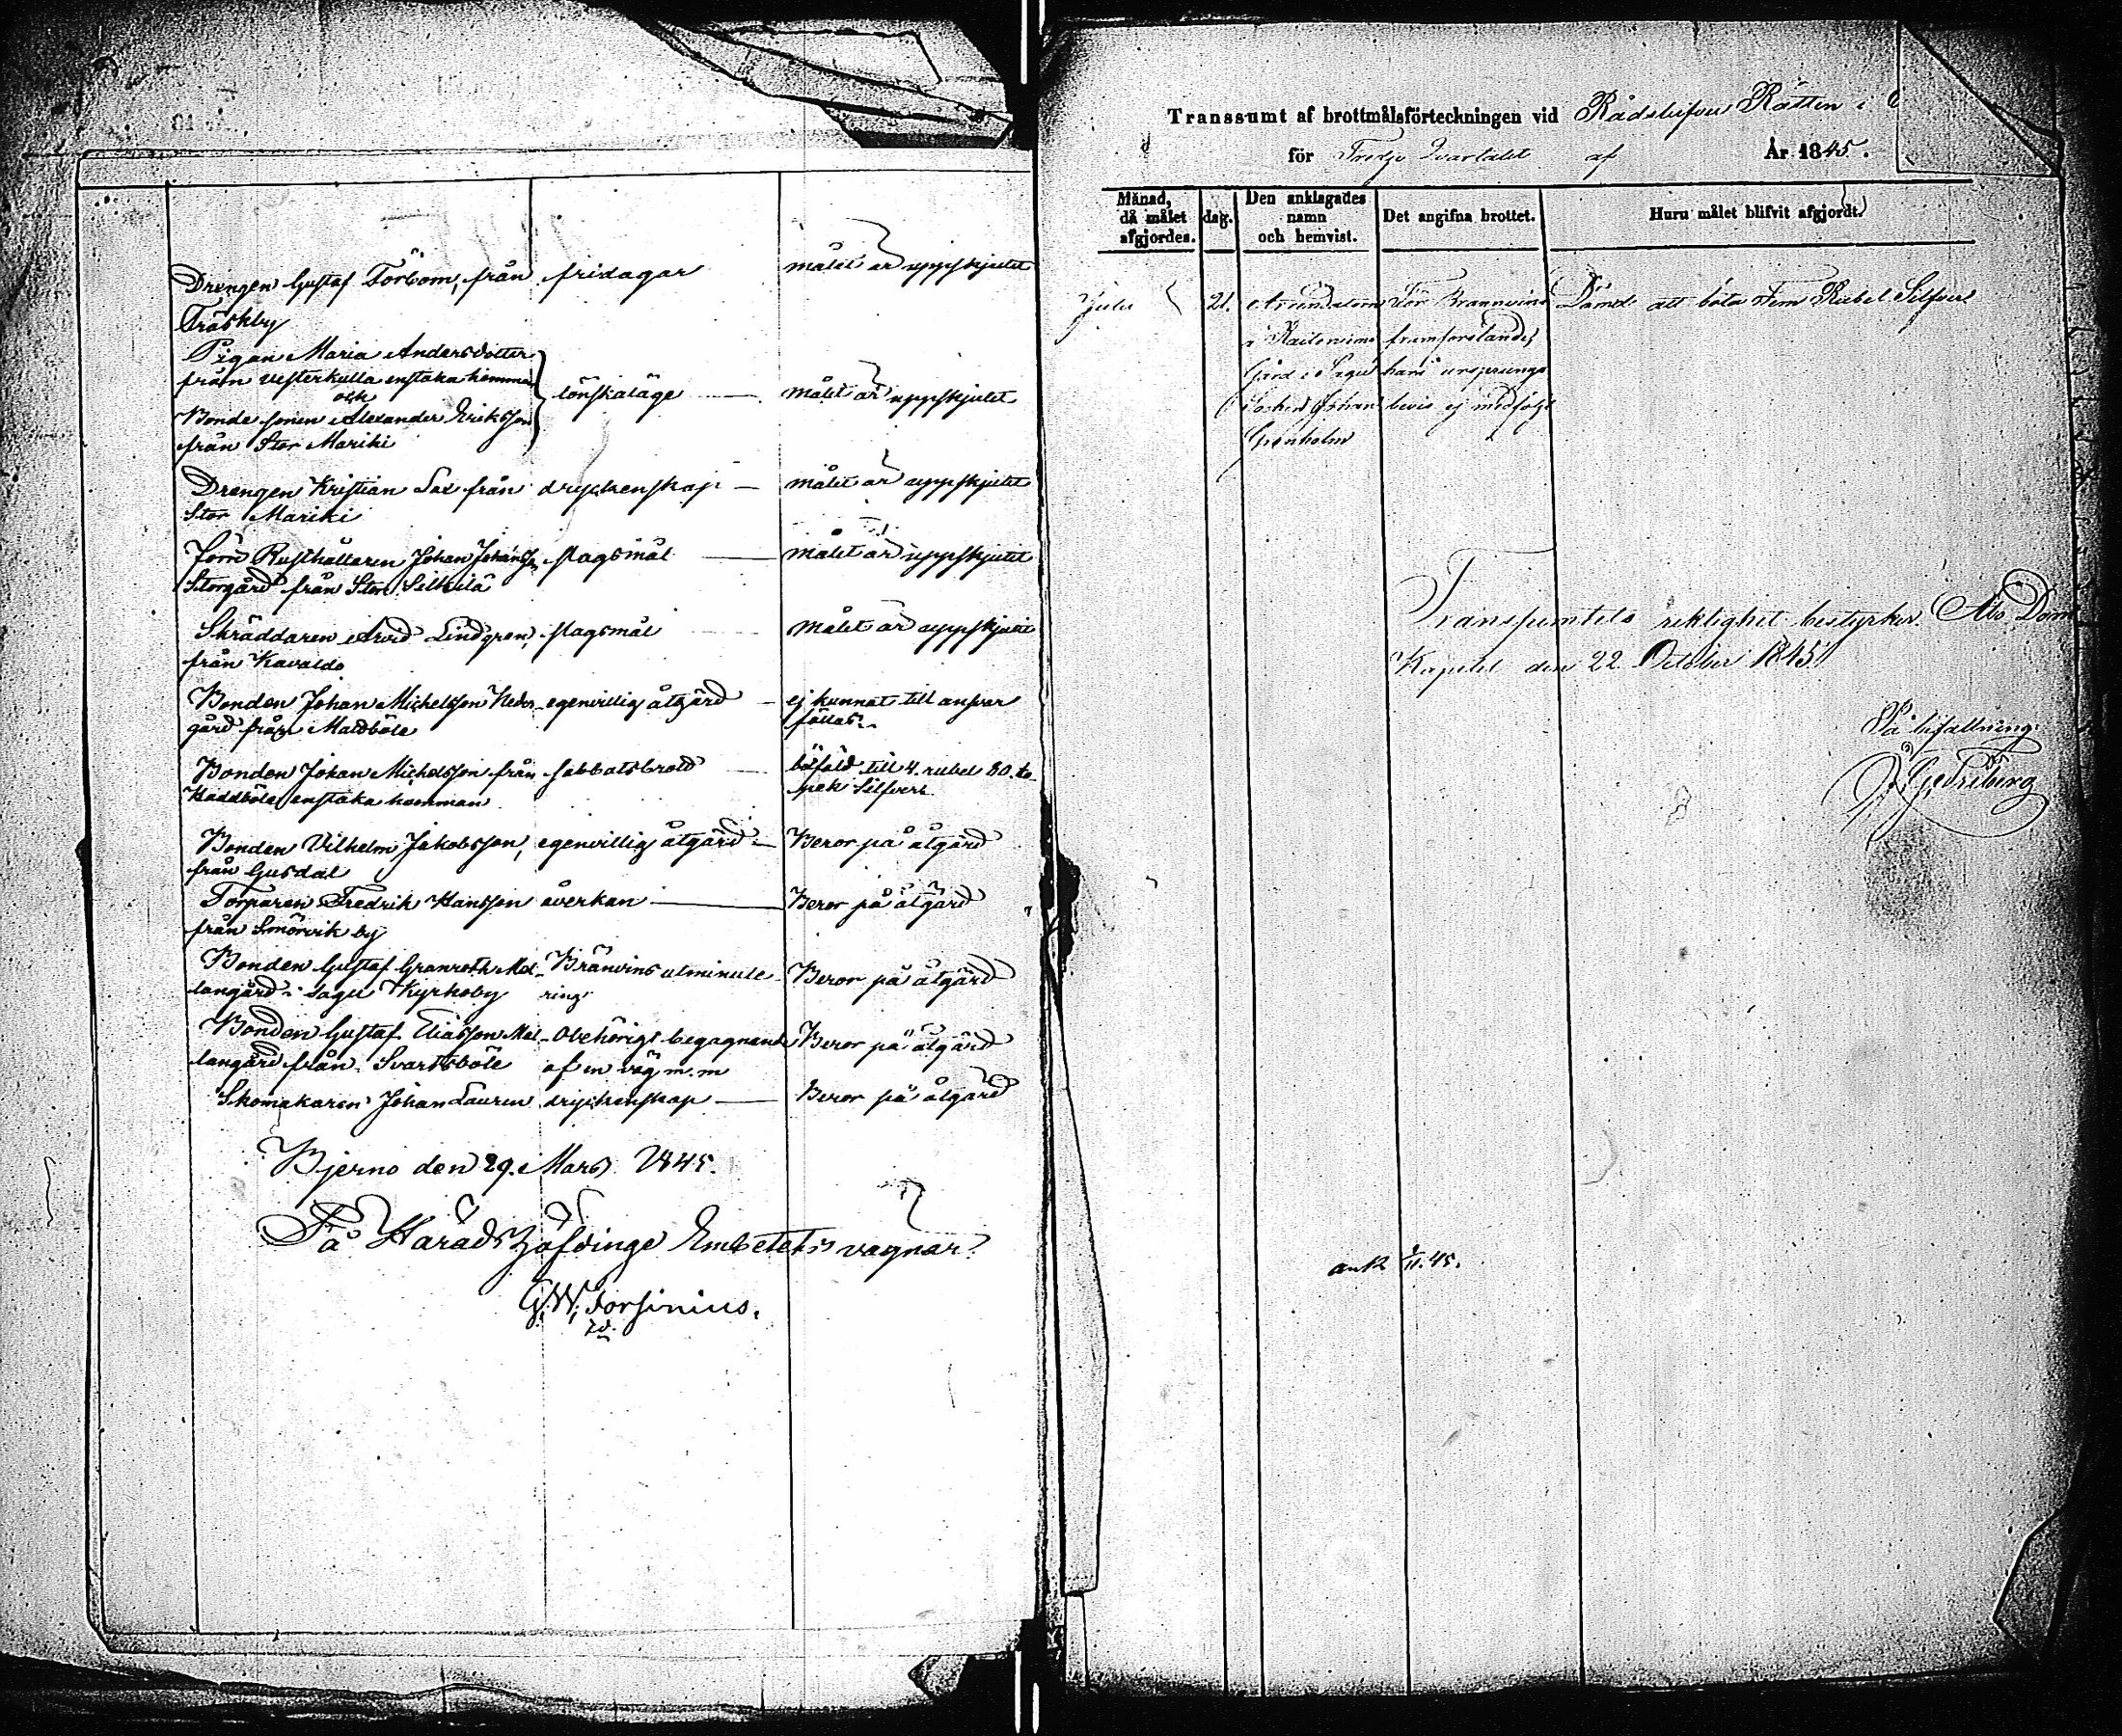 Drengen Gustaf Törbom, från fridagar målet är uppskjutet
Träskby
Pigan Maria Andersdotter
från Vesterkulla enstaka hemman
och lönskaläge målet är uppskjutet
Bonde sonen Alexander Eriksson
från Stor Mariki
Drengen Kristian Sax från dryckenskap målet är uppskjutet
Stor Mariki
Förre Rusthållaren Johan Johansson slagsmål målet är uppskjutet
Storgård från Stor Silkilä
Skräddaren Arvid Lindgren, slagsmål målet är uppskjutet
från Kavaldo
Bonden Johan Michelsson Neder- egenvillig åtgärd ej kunnat till ansvar
gård från Maldböle fällas.
Bonden Johan Michelsson från sabbatsbrott böfäld till 4. rubel 80. ko-
Haddböle enstaka hemman pek Silfver
Bonden Vilhelm Jakobsson, egenvillig åtgärd Beror på åtgärd
från Gusdal
Torparen Fredrik Hansson åverkan Beror på åtgärd
från Smörvik by
Bonden Gustaf Granroth Mel- Bränvins utminute- Beror på åtgärd
langård i Sagu Kyrkoby ring
Bonden Gustaf Eliasson Mel- Obehörigt begagnande Beror på åtgärd
langård från Svartsböle af en väg m.m
Skomakaren Johan Lauren dryckenskap Beror på åtgärd
Bjerno den 29. Mars 1845.
På Häradshöfdinge Embetets vagnar
G.W. Forsinius.
Transsumt af brottmålsförteckningen vid Rådstufvu Rätten i
för Tredje Qvartalet af År 1845.
Månad, då målet afgjordes. dag. Den anklagades namn och hemvist. Det angifna brottet. Huru målet blifvit afgjordt.
Julii 21. Arrendatorn för Brännvins Dömd att böta Fem Rubel Silfver
å framforslande,
Gård i Sagu hvars ursprungs
Socken Johan bevis ej medföljt
Grönholm
Transsumtets riktighet bestyrker. Åbo Dom
Kapitel den 22 October 1845.
På befallning:
ank 1/11.45.